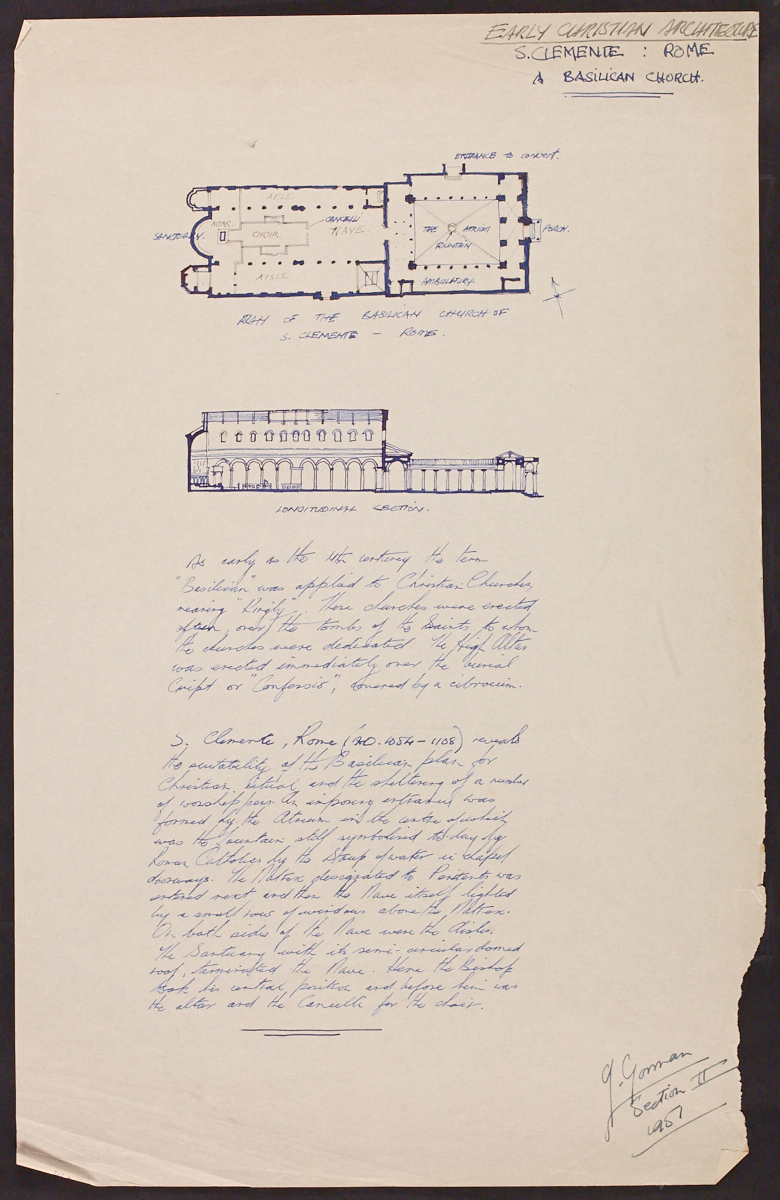 EARLY CHRISTIAN ARCHITECTURE
S. CLEMENTE : ROME
A BASILICAN CHURCH.
ENTRANCE TO CONVENT.
AISLE
CANCELLI
SANCTUARY.
ALTAR
CHOIR
NAVE
THE ATRIUM
FOUNTAIN
PORCH.
AISLE
AMBULATORY
PLAN OF THE BASILICAN CHURCH OF
S. CLEMENTE — ROME.
LONGITUDINAL SECTION.
As early as the 4th century the term
"Basilican" was applied to Christian Churches,
meaning "Kingly". These churches were erected
often, over the tombs of the Saints to whom
the churches were dedicated. The High Altar
was erected immediately over the burial
Cript or "Confessio", covered by a ciborium.
S. Clemente, Rome (A.D. 1084 – 1108) reveals
the suitability of the Basilican plan for
Christian ritual and the sheltering of a number
of worshippers. An imposing entrance was
formed by the Atrium in the centre of which
was the Fountain still symbolised to-day by
Roman Catholics by the Stoup of water in chapel
doorways. The Nartex designated to Penitents was
entered next and then the Nave itself lighted
by a small row of windows above the Nartex.
On both sides of the Nave were the Aisles.
The Santuary with its semi-circular domed
roof, terminated the Nave. Here the Bishop
took his central position and before him was
the altar and the Cancelli for the choir.
G. Gorman
Section II
1951